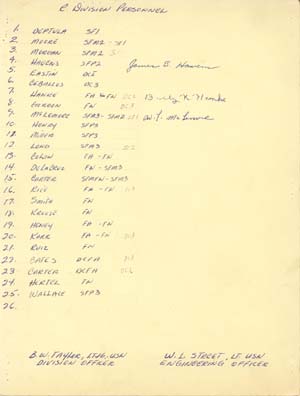 R Division Personnel
1. Deptula SF1
2. Moore SFM2 - SF1
3. Morgan SFM2
4. Havens SFP2 James E Havens
5. Eastin DC2
6. Ceballos DC3
7. Hanke FA - FN DC3
8. Gordon FN DC3
9. McLemore SFM3 - SFM2
10. Henry SFP3
11. Mixon SFP3
12. Lend SFM3 DC2
13. Colon FA - FN
14. DeLaCruz FN - SFM3
15. Porter SFMFN - SFM3
16. Rice FA - FN DC3
17. Smith FN
18. FN
19. Heney FA - FN
20. Karr FA - FN DC3
21. Ruiz FN
22. Bates DCFA DC3
23. Carter DCFA DC2
24. Hertel FN
25. Wallace SFP3
26.
B.W. Taylor, LTJG, USN W. L. Street, LT USN
Division Officer Engineering Officer